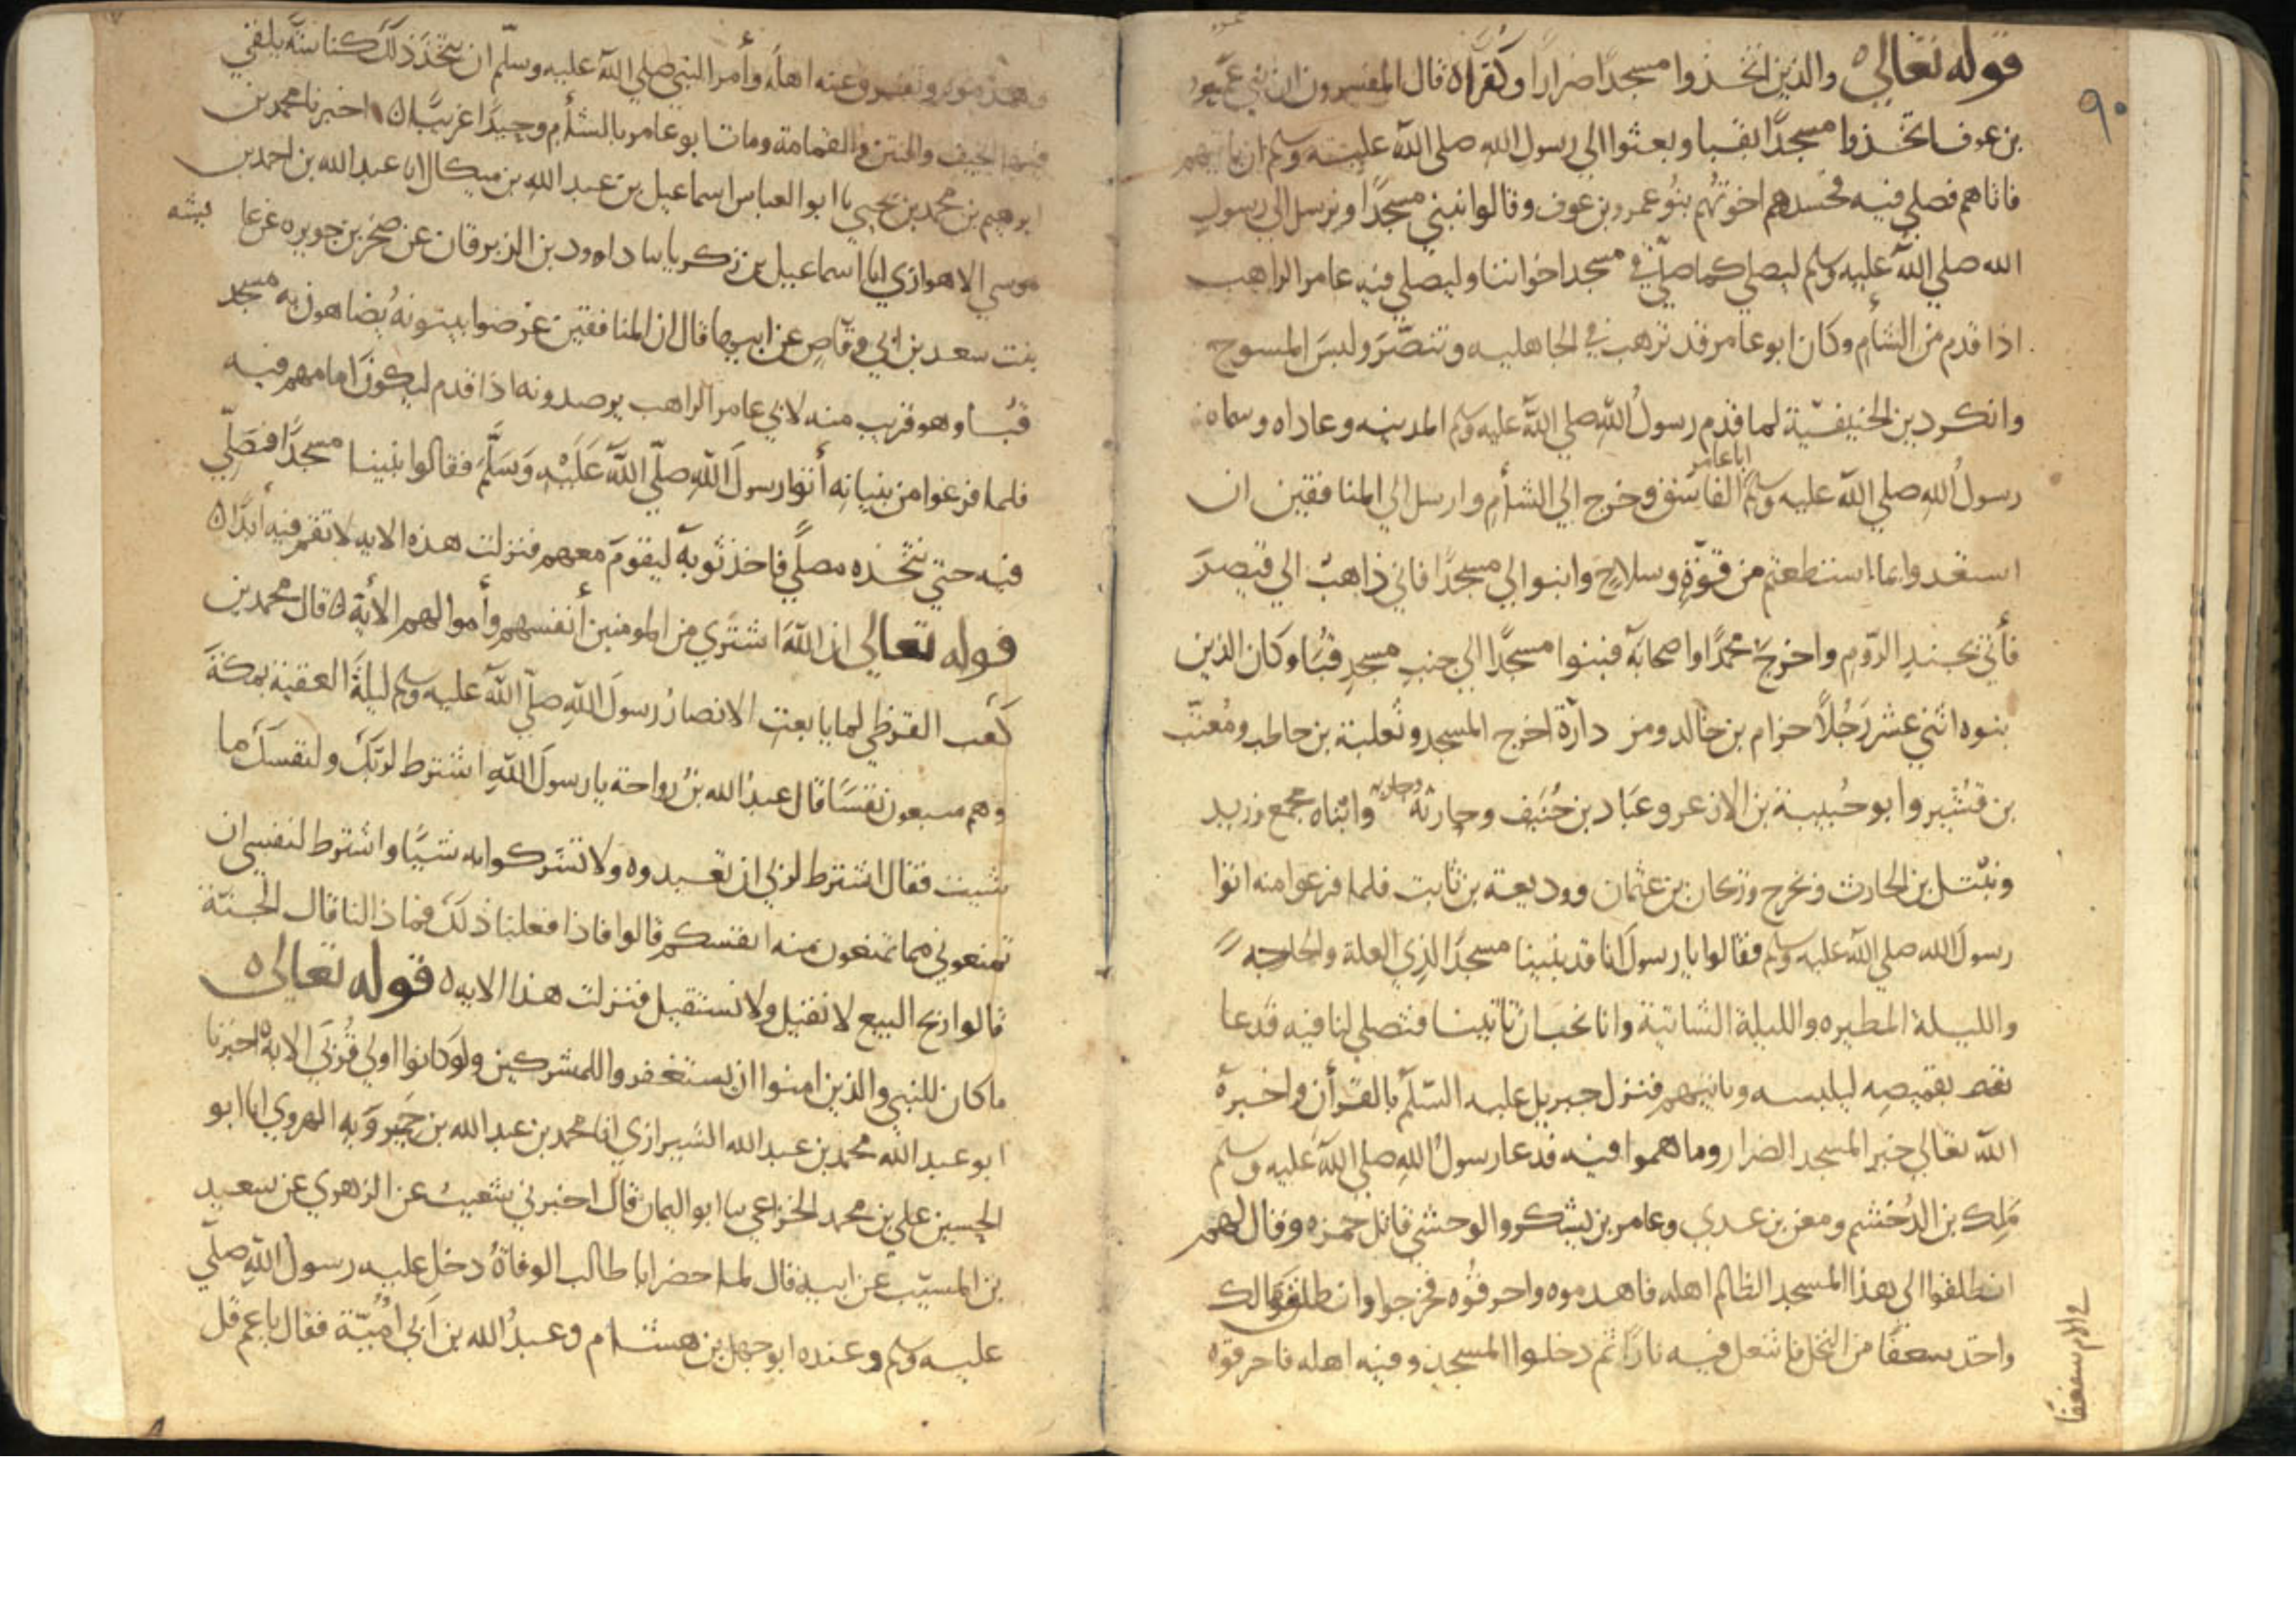 ٩٠
قوله تعالى ه والذين اتخذوا مسجدًا ضرارًا وكفرًا ه قال المفسرون ان بني عمرو
بن عوف اتخذوا مسجدًا بقبا وبعثوا الى رسول الله صلى الله عليه وسلم ان ياتيهم
فاتاهم فصلى فيه فحسدهم اخوتهم بنو عمرو بن عوف وقالوا نبني مسجدًا ونرسل الى رسول
الله صلى الله عليه وسلم ليصلي كما صلى في مسجد اخواننا وليصلي فيه عامر الراهب
اذا قدم من الشأم وكان ابو عامر قد ترهب في الجاهليه وتنصّر ولبس المسوح
وانكر دين الحنيفيّة لما قدم رسول الله صلى الله عليه وسلم المدينه وعاداه وسماه
اباعامر
رسول الله صلى الله عليه وسلم الفاسق وخرج الى الشأم وارسل الى المنافقين ان
استعدوا بما استطعتم من قوّة وسلاح وابنوا لي مسجدًا فاني ذاهب الى قيصر
فأتي بجند الروم واخرج محمدًا واصحابه فبنوا مسجدًا الى جنب مسجد قبا وكان الذين
بنوه اثني عشر رجلًا حزام بن خالد ومن داره اخرج المسجد وثعلبة بن حاطب ومعتّب
بن قشير وابو حبيبة بن الازعر وعباد بن حنيف وحارثة وابناه مجمع وزيد
ونبتل بن الحارث وبحزج وبحان بن عثمان ووديعة بن ثابت فلما فرغوا منه اتوا
رسول الله صلى الله عليه وسلم فقالوا يا رسول انا قد بنينا مسجدًا لذي العلة والحاجه
والليلة المطيره والليلة الشاتية وانا نحب ان تاتينا فتصلي لنا فيه فدعا
بقميصه ليلبسه وياتيهم فنزل جبريل عليه السّلم بالقرأن واخبره
الله تعالى خبر المسجد الضرار وما هموا فيه فدعا رسول الله صلى الله عليه وسلم
ملك بن الدخشم ومعن بن عدي وعامر بن يشكر والوحشي قاتل حمزه وقال لهم
انطلقوا الى هذا المسجد الظالم اهله فاهدموه واحرقوه فخرجوا وانطلق مالك
واخذ سعفًا من النخل فاشعل فيه نارًا ثم دخلوا المسجد وفيه اهله فاحرقوه
سعفًا
وهدموه وتفرق عنه اهله وأمر النبي صلى الله عليه وسلّم ان يتخذ ذلك كناسة يلقى
فيها الجيف والنتن والقمامة ومات ابو عامر بالشأم وحيدًا غريبًا ه اخبرنا محمد بن
ابرهيم بن محمد بن يحيى نا ابو العباس اسماعيل بن عبد الله بن ميكال انا عبد الله بن احمد بن
موسى الاهوازي انا اسماعيل بن زكريا نا داوود بن الزبرقان عن صخر بن جويره عن عايشه
بنت سعد بن ابي وقاص عن ابيها قال ان المنافقين عرضوا يبنونه يضاهون به مسجد
قبا وهو قريب منه لابي عامر الراهب يرصدونه اذا قدم ليكون امامهم فيه
فلما فرغوا من بنيانه أتوا رسول الله صلّى الله عليه وسلّم فقالوا بنينا مسجدًا فصلّي
فيه حتى نتخذه مصلّى فاخذ ثوبه ليقوم معهم فنزلت هذه الايه لا تقم فيه أبدًا ه
قوله تعالى ان الله اشترى من المومنين أنفسهم وأموالهم الأية ه قال محمد بن
كعب القرظي لما بايعت الانصار رسول الله صلّى الله عليه وسلم ليلة العقبة بمكة
وهم سبعون نفسًا قال عبد الله بن رواحة يا رسول الله اشترط لربّك ولنفسك ما
شيت فقال اشترط لربي ان تعبدوه ولا تشركوا به شيًا واشترط لنفسي ان
تمنعوني مما تمنعون منه انفسكم قالوا فاذا فعلنا ذلك فماذا لنا قال الجنّة
قالوا ربح البيع لا نقيل ولا نستقيل فنزلت هذا الايه ه قوله تعالى ه
ما كان للنبي والذين امنوا ان يستغفروا للمشركين ولو كانوا اولي قربى الاية ه اخبرنا
ابو عبد الله محمد بن عبد الله الشيرازي انا محمد بن عبد الله بن خميرويه الهروي انا ابو
الحسين علي بن محمد الخزاعي نا ابو اليمان قال اخبرني شعيب عن الزهري عن سعيد
بن المسيّب عن ابيه قال لما حضر ابا طالب الوفاة دخل عليه رسول الله صلّى
عليه وسلم وعنده ابو جهل بن هشام وعبد الله بن أبي أميّة فقال يا عم قل